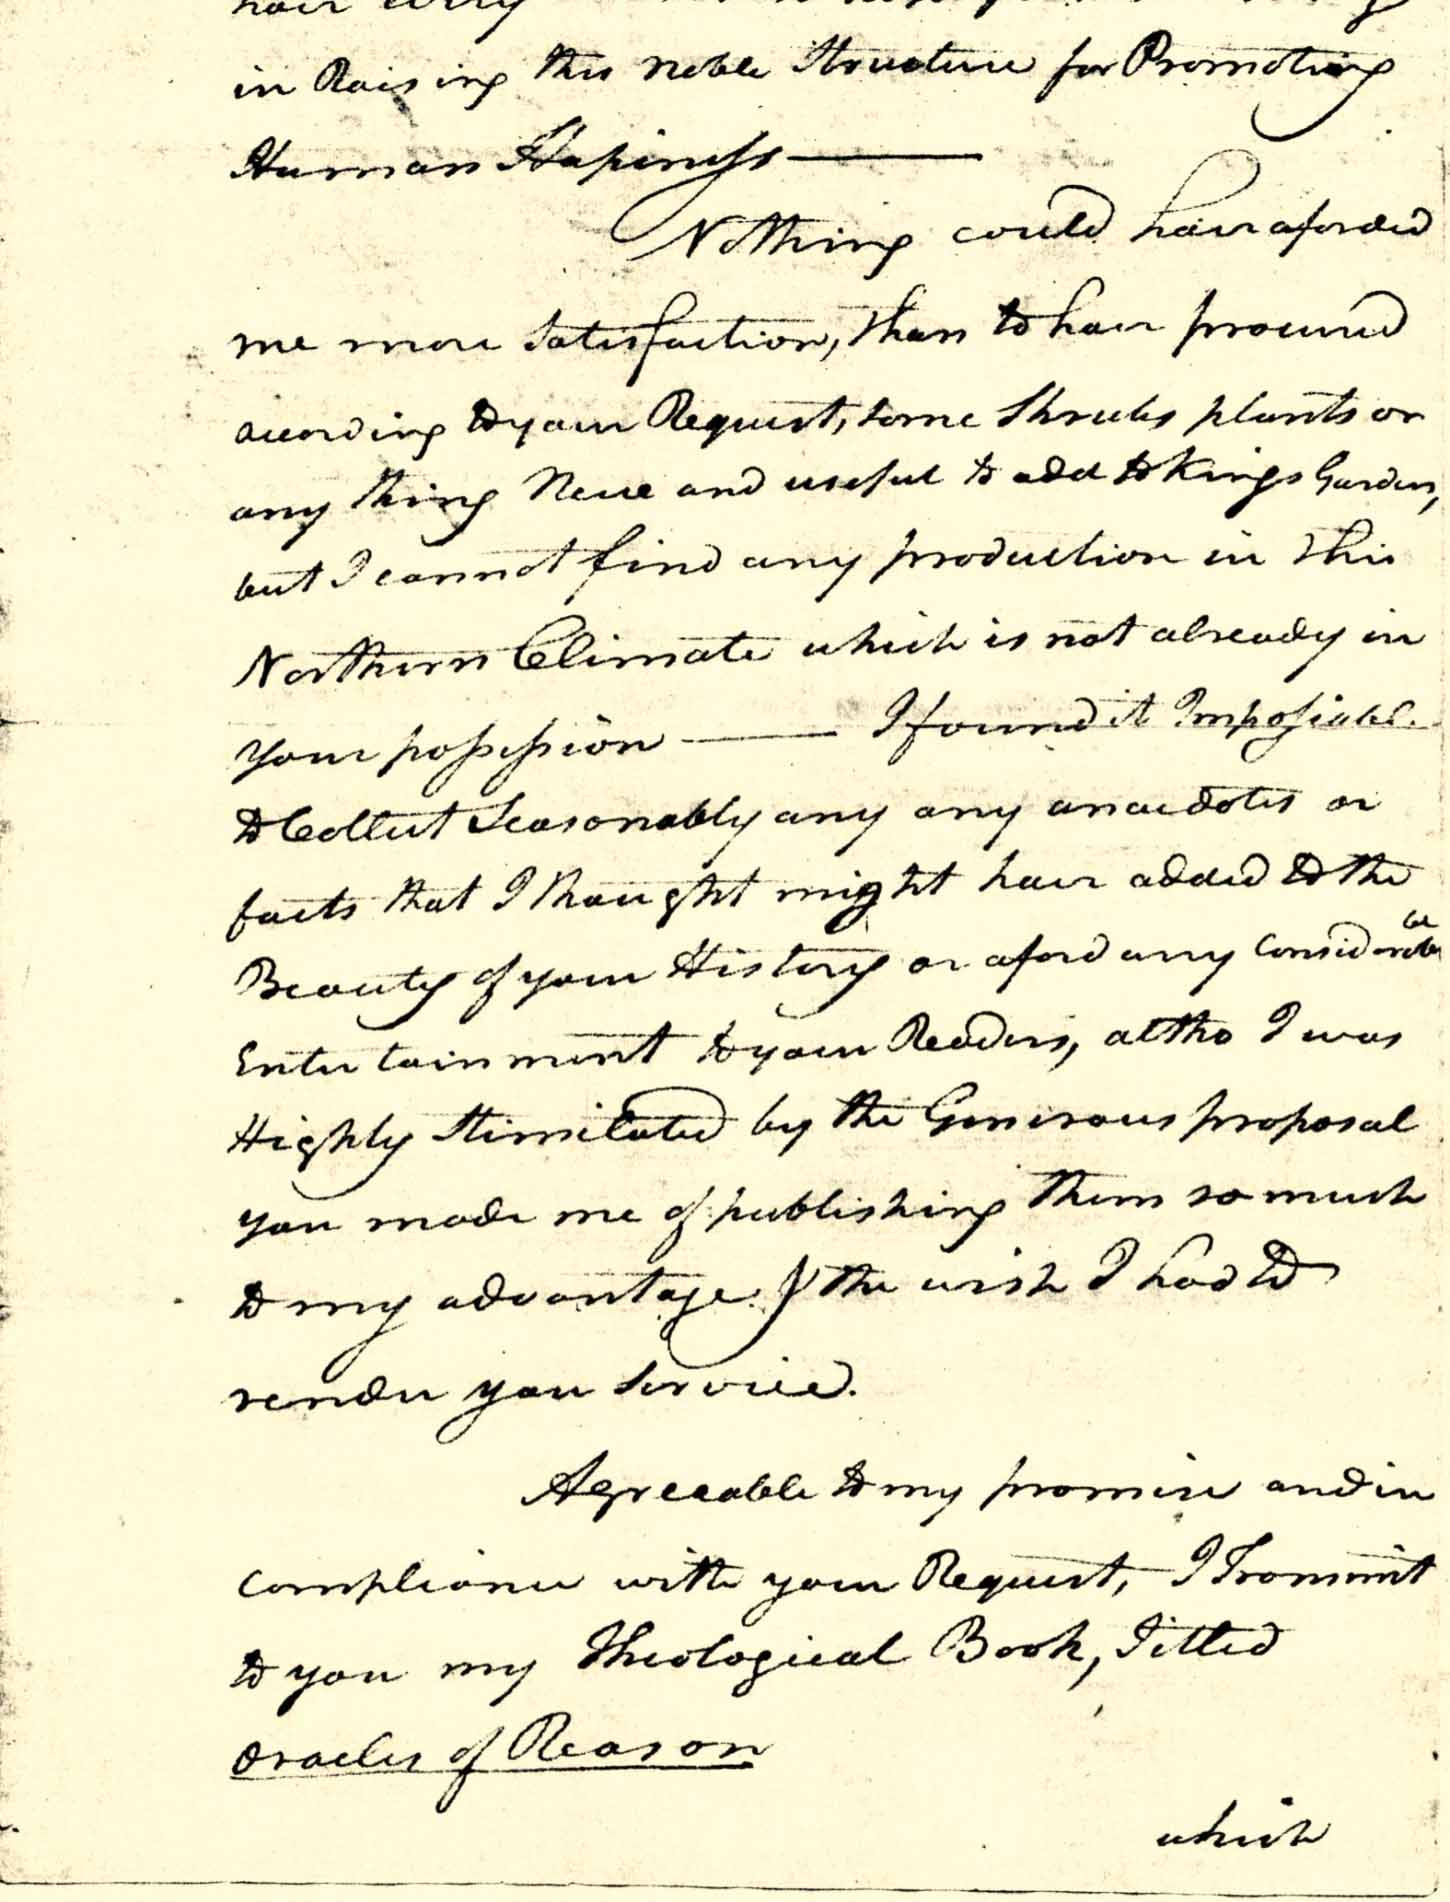 in Raising this noble Structure for Promoting
Human Hapiness —
Nothing could have aforded
me more Satisfaction, than to have procured
acording to your Request, some Shrubs plants or
any thing New and useful to add to Kings Garden,
but I cannot find any production in this
Northern Climate which is not already in
your possession — I found it Impossiable
to Collect Seasonably any any anacdotes or
facts that I thought might have added to the
Beauty of your History or aford any Considerable
Entertainment to your Readers, altho I was
Highly Stimilated by the Generous proposal
you made me of publishing them so much
to my advantage & the wish I had to
render you Service.
Agreeable to my promise and in
compliance with your Request, I Transmit
to you my Theological Book, Titled
Oracles of Reason
which